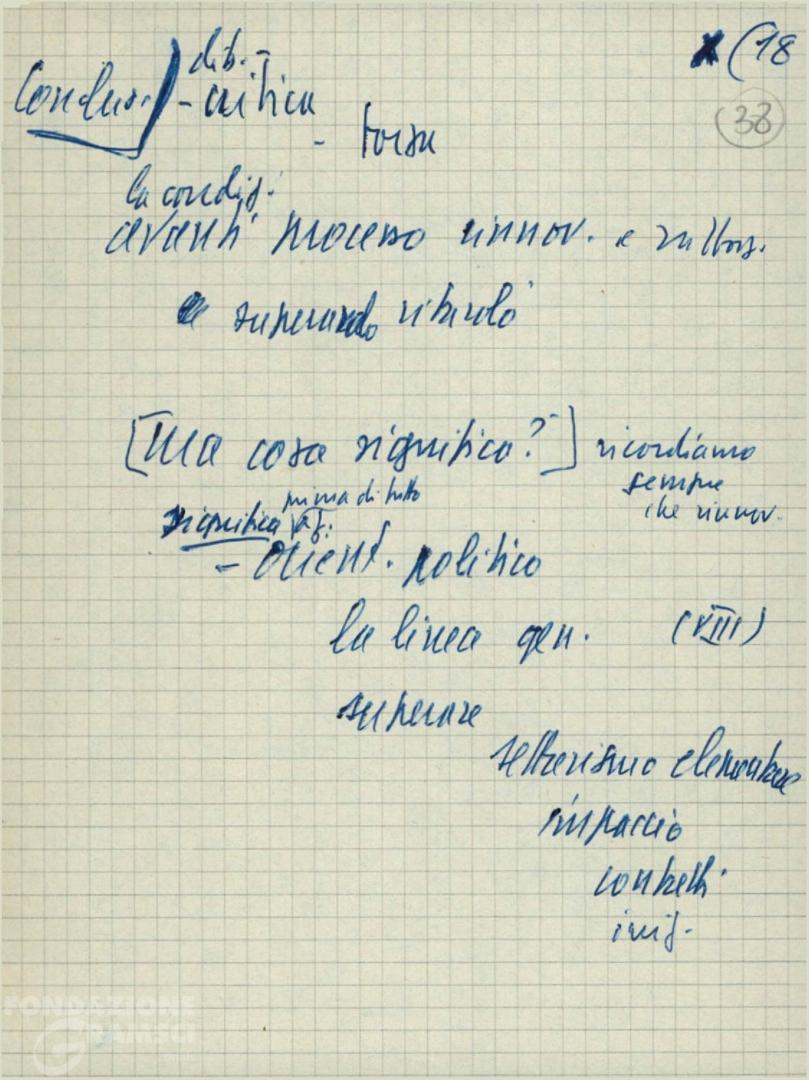 (18
38
dib. -
Conclus. - critica
- forza
la condiz.
avanti processo rinnov. e rafforz.
superando ritardi
[Ma cosa significa?] ricordiamo
sempre
che rinnov.
prima di tutto
significa
- orient. politico
la linea gen. (VIII)
superare
settarismo elementare
impaccio
contatti
iniz.
FONDAZIONE
GRAMSCI